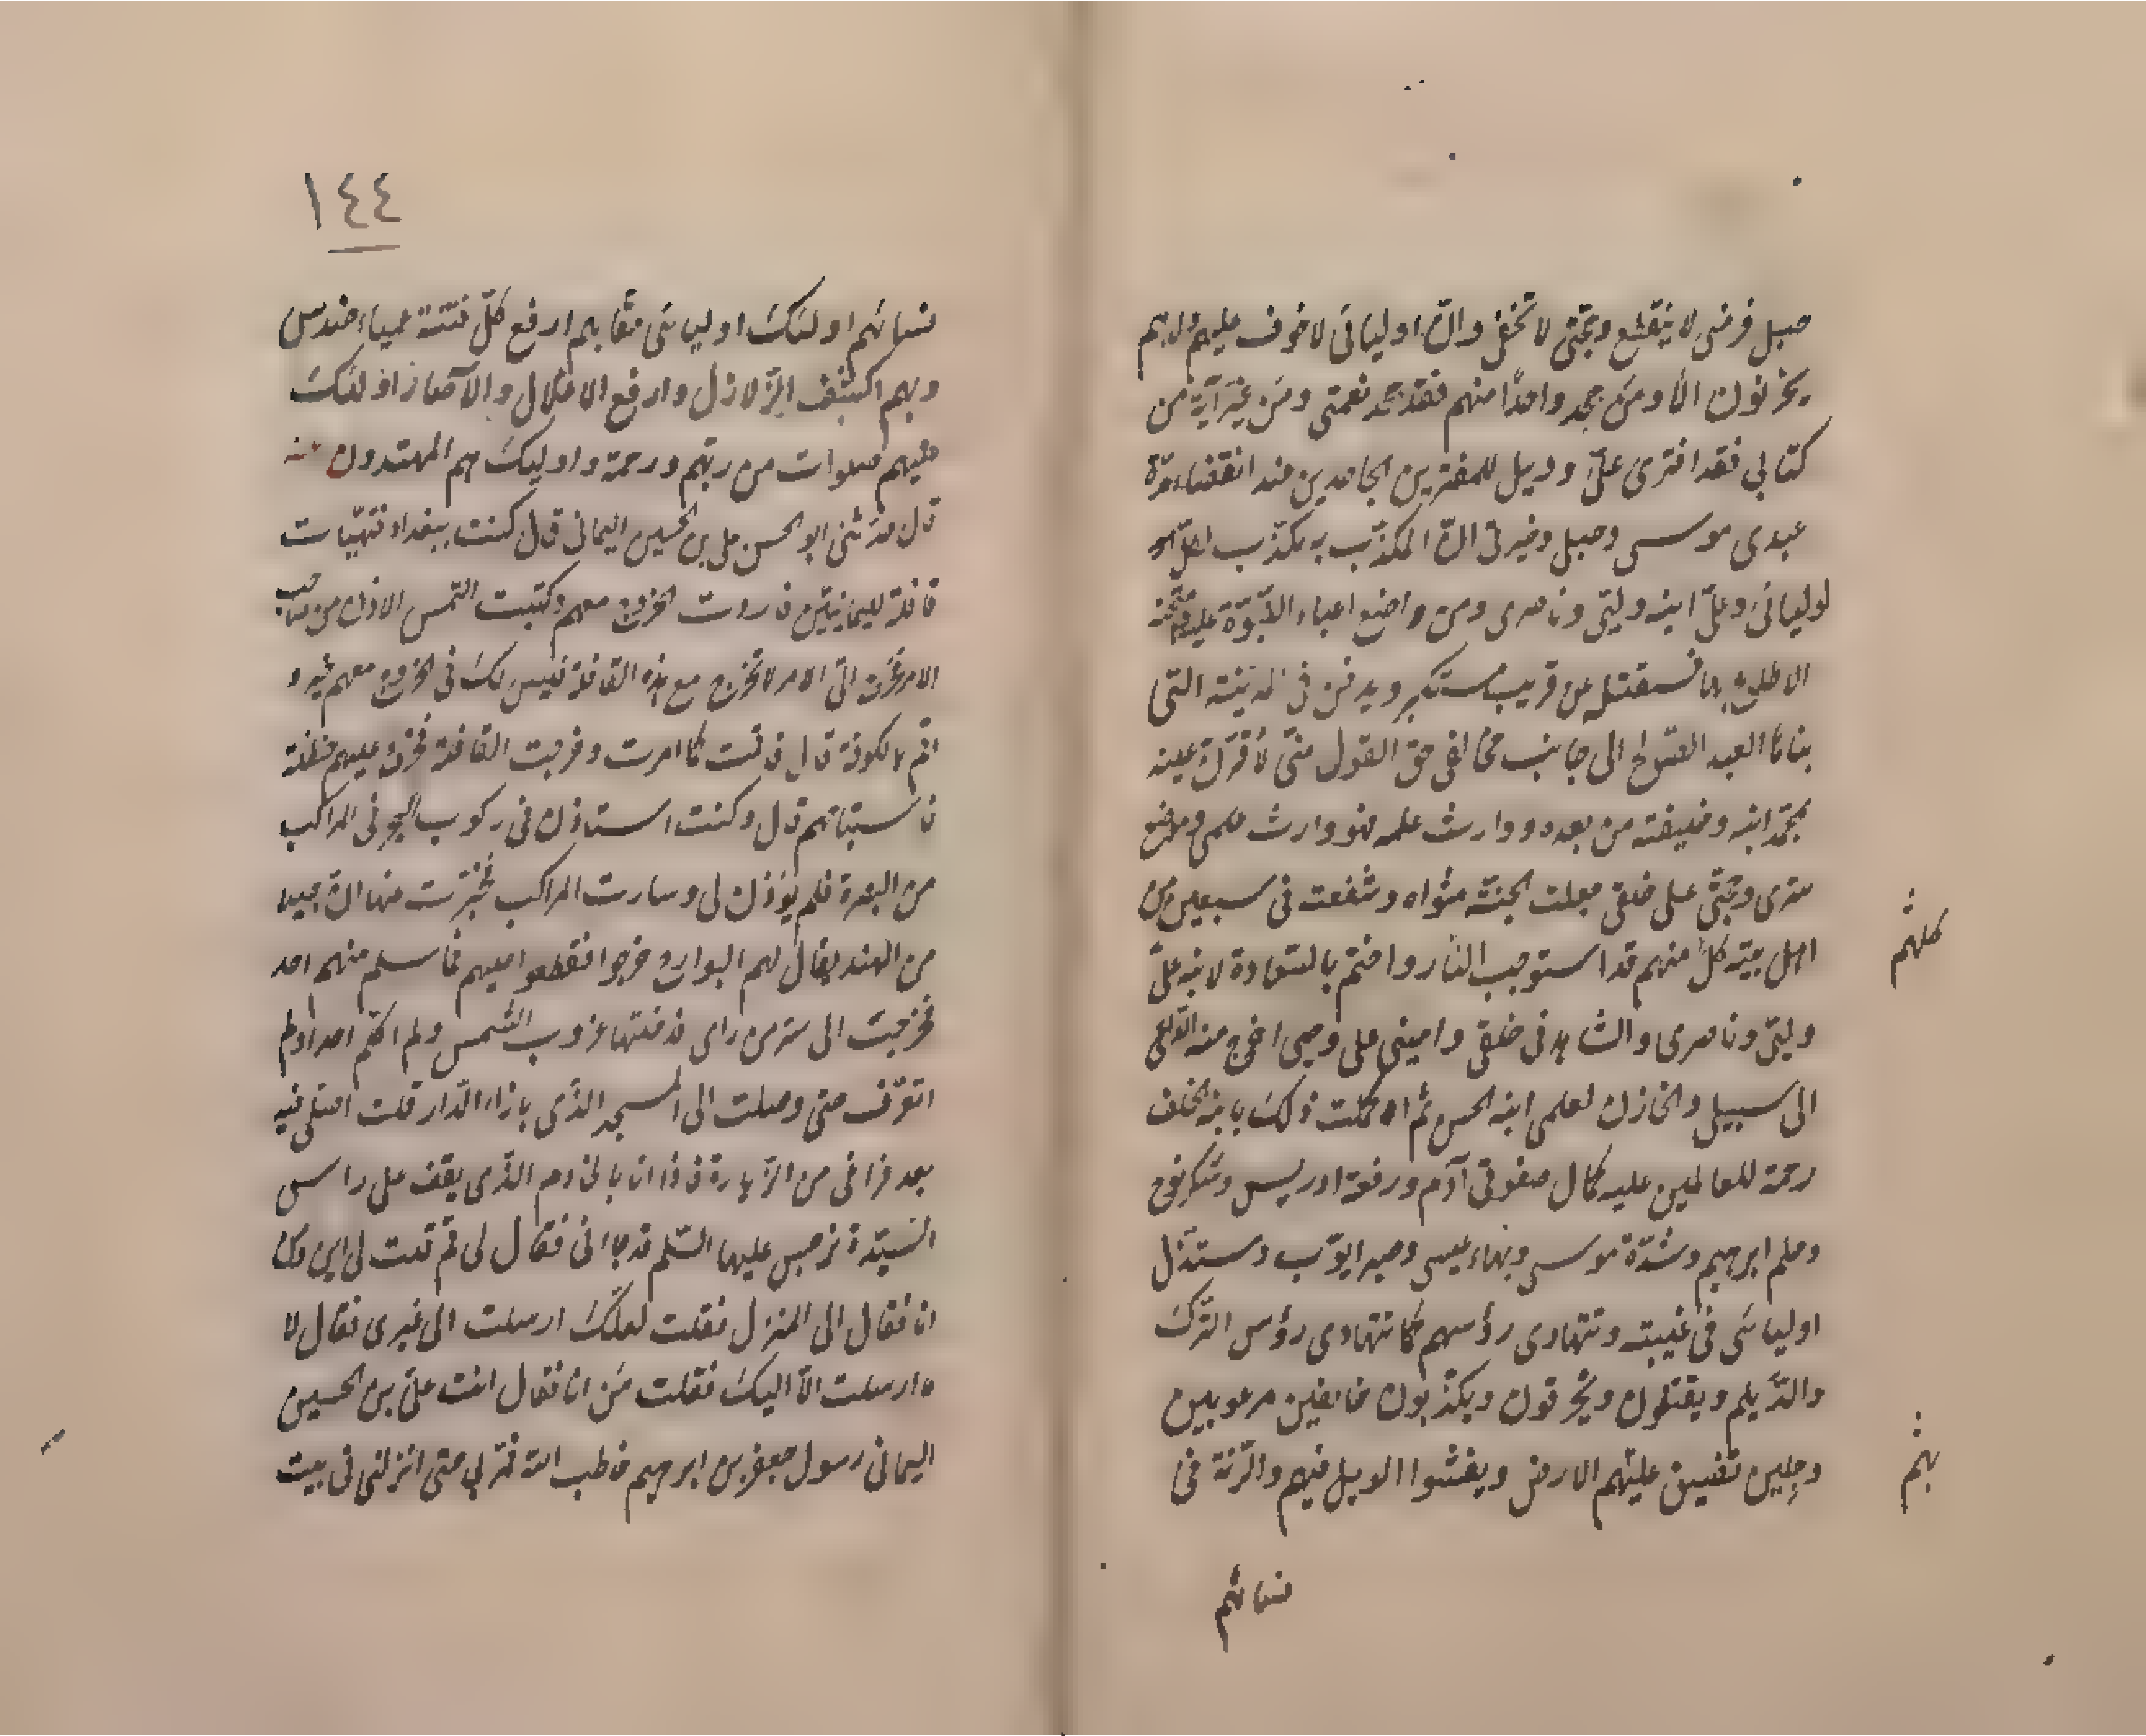 حبل فرضي لا ينقطع وحجّتي لا تخفى وانّ اوليائي لا خوف عليهم ولا هم
يحزنون الا ومن جحد واحدًا منهم فقد جحد نعمتي ومن غيّر آية من
كتابي فقد افترى عليّ وويل للمفترين الجاحدين عند انقضاء مدّة
عبدي موسى وحبيبي وخيرتي انّ المكذّب به مكذّب لكلّ
اوليائي وعليّ ابنه وليّي وناصري ومن واضع اعباء النّبوّة عليه وامتحنه
الاطلاع بها سيقتله عفريت مستكبر ويدفن في المدينة التي
بناها العبد الصّالح الى جانب مخالفي حق القول منّي لأقرّنّ عينه
بمحمّد ابنه وخليفته من بعده ووارث علمه فهو وارث علمي وموضع
سرّي وحجّتي على خلقي جعلت الجنّة مثواه وشفعته في سبعين من
اهل بيته كلّ منهم قد استوجب النّار واختم بالسّعادة لابنه عليّ
كلهم
وليّي وناصري والشاهد في خلقي واميني على وحيي اخرج منه الدّاعي
الى سبيلي والخازن لعلمي ابنه الحسن ثمّ اكملت ذلك بابنه الخلف
رحمة للعالمين عليه كمال صفوتي آدم ورفعة ادريس وسكونوح
وحلم ابرهيم وشدّة موسى وبهاء عيسى وصبر ايّوب وستذلّ
اوليائي في غيبته وتتهادى رؤسهم كما تتهادى رؤس التّرك
والدّيلم ويقتلون ويحرقون ويكذّبون خايفين مرعوبين
وجلين تضيق عليهم الارض ويفشوا الويل فيهم والرّنّة في
بهم
نسائهم
١٤٤
نسائهم اولئك اوليائي حقّا بهم ارفع كلّ فتنة عمياء حندس
وبهم اكشف الزّلازل وارفع الاغلال والآصار اولئك
عليهم صلوات من ربّهم ورحمة واوليك هم المهتدون عنه
قال حدّثني ابو الحسن علي بن الحسين اليماني قال كنت ببغداد فتهيّات
قافلة لليمانيّين فاردت الخروج معهم وكتبت التمس الاذن من صاحب
الامر فخرج اليّ الامر لا تخرج مع هذه القافلة فليس لك في الخروج معهم خيره و
اقم بالكوفة قال فاقمت كما امرت وخرجت القافلة فخرج عليهم حنظلة
فاستباحهم قال وكنت استاذن في ركوب البحر في المراكب
من البصرة فلم يؤذن لي وسارت المراكب فخبّرت عنها انّ جيلا
من الهند يقال لهم البوارج خرجوا فقطعوا عليهم فما سلم منهم احد
فخرجت الى سرّ من راى فدخلتها غروب الشّمس ولم اكلّم احدا ولم
اتعرّف حتى وصلت الى المسجد الذّي بازاء الدّار قلت اصلّي فيه
بعد فراغي من الزّيارة فاذا انا بالخادم الذّي يقف على راس
السّيّدة نرجس عليها السّلم قد جاءني فقال لي قم قلت لي اين ومن
انا فقال الى المنزل فقلت لعلّك ارسلت الى غيري فقال لا
ما ارسلت الّا اليك فقلت من انا فقال انت عليّ بن الحسين
اليماني رسول جعفر بن ابرهيم فاطب الله فمرّ بي حتى انزلني في بيت